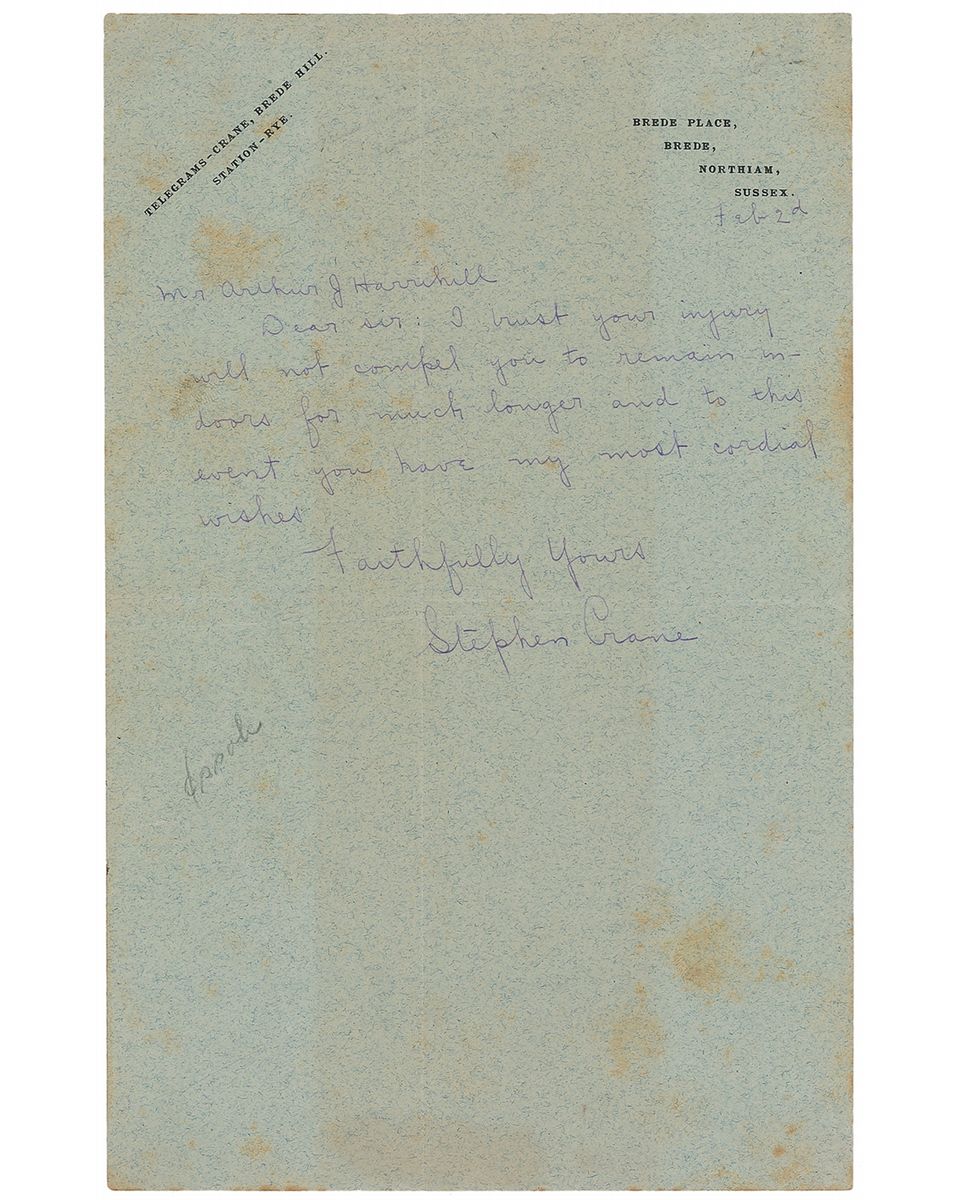 TELEGRAMS-CRANE, BREDE HILL.
STATION-RYE.
BREDE PLACE,
BREDE,
NORTHIAM,
SUSSEX.
Feb 2d
Mr Arthur J Harrihill
Dear sir: I trust your injury
will not compel you to remain in-
doors for much longer and to this
event you have my most cordial
wishes
Faithfully Yours
Stephen Crane